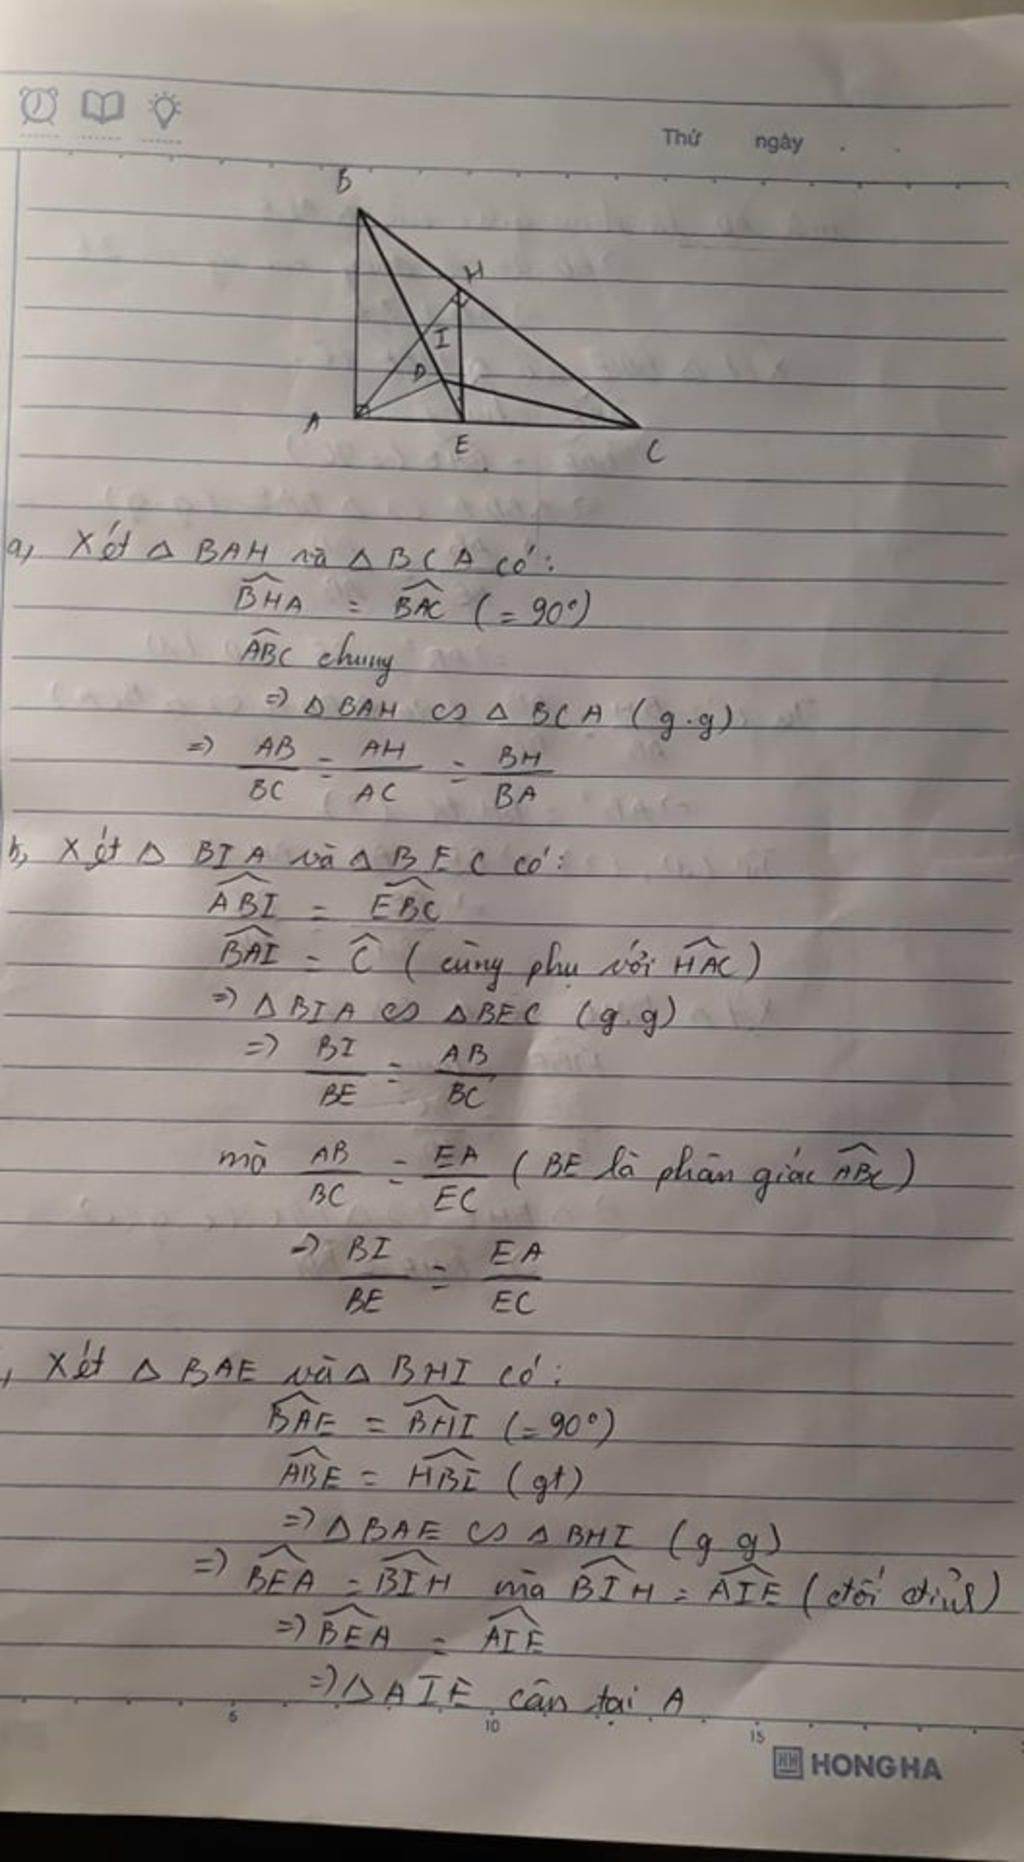 Thứ ngày
B
H
I
D
A
E
C
a, Xét △ BAH và △ BCA có:
\widehat{BHA} = \widehat{BAC} (= 90°)
\widehat{ABC} chung
=> △ BAH ∽ △ BCA (g.g)
=> AB/BC = AH/AC = BH/BA
b, Xét △ BIA và △ BEC có:
\widehat{ABI} = \widehat{EBC}
\widehat{BAI} = \widehat{C} (cùng phụ với \widehat{HAC})
=> △BIA ∽ △BEC (g.g)
=> BI/BE = AB/BC
mà AB/BC = EA/EC (BE là phân giác \widehat{ABC})
=> BI/BE = EA/EC
, Xét △ BAE và △ BHI có:
\widehat{BAE} = \widehat{BHI} (= 90°)
\widehat{ABE} = \widehat{HBI} (gt)
=> △BAE ∽ △BHI (g g)
=> \widehat{BEA} = \widehat{BIH} mà \widehat{BIH} = \widehat{AIE} (đối đỉnh)
=> \widehat{BEA} = \widehat{AIE}
=> △AIE cân tai A
5 10 15
HH HONG HA